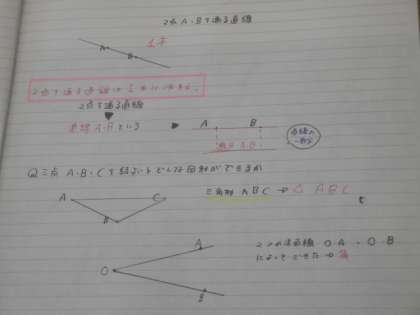 2点A・Bを通る直線
A
B
1本
2点を通る直線は1本
2点を通る直線
直線ABという
A B
線分AB
直線の一部分
Q三点A・B・Cを結ぶとどんな図形ができるか
A C
B
三角形ABC → △ABC
A
O
B
2つの半直線OAとOB
によってできた→角